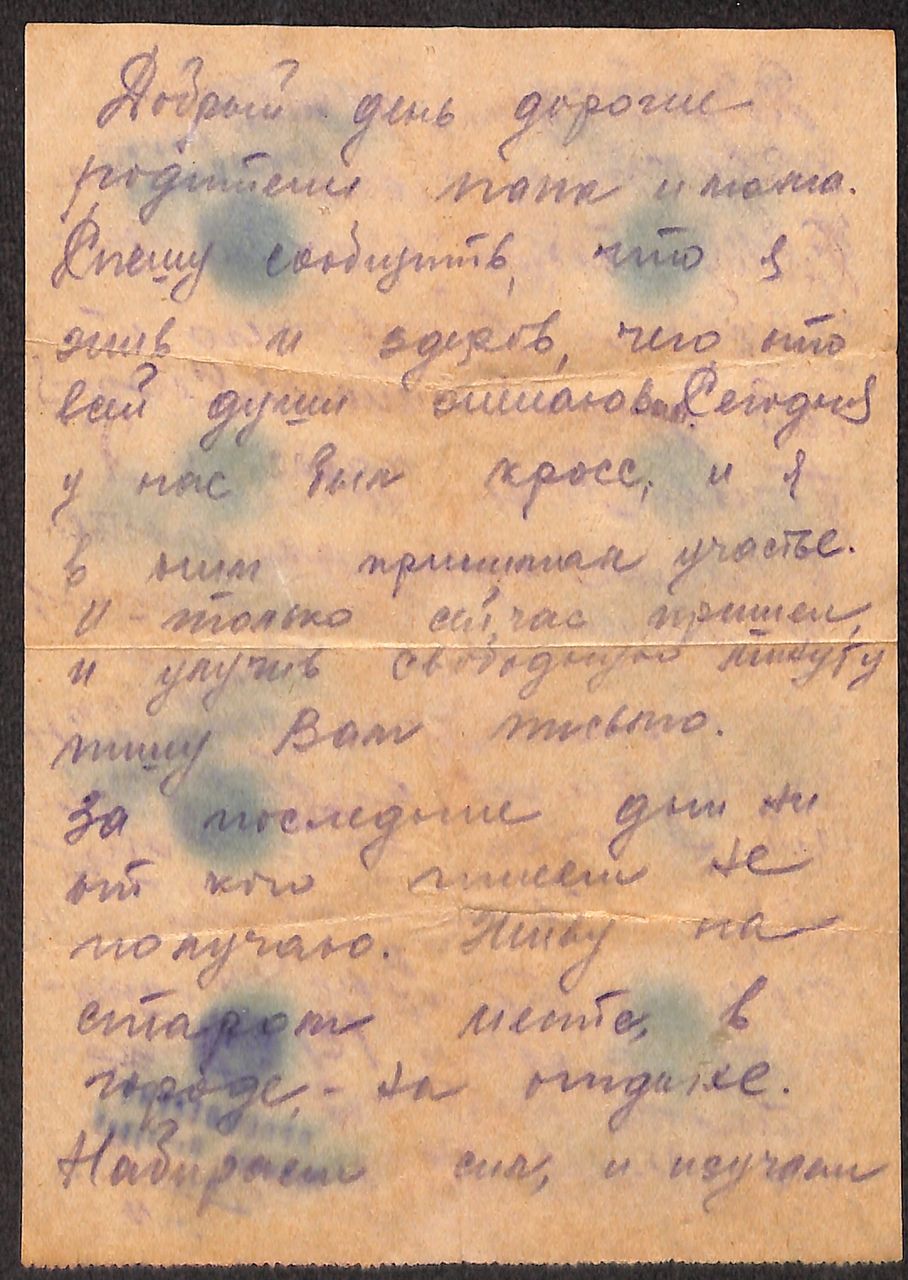 Добрый день дорогие
родители папа и мама.
Спешу сообщить, что я
жив и здоров, чего и
всей души желаю Вам. Сегодня
у нас был кросс, и я
в нём принимал участье.
И только сейчас пришел,
и улучив свободную минуту
пишу Вам письмо.
За последние дни ни
от кого писем не
получаю. Живу на
старом месте, в
городе, - на отдыхе.
Набираем сил, и изучаем